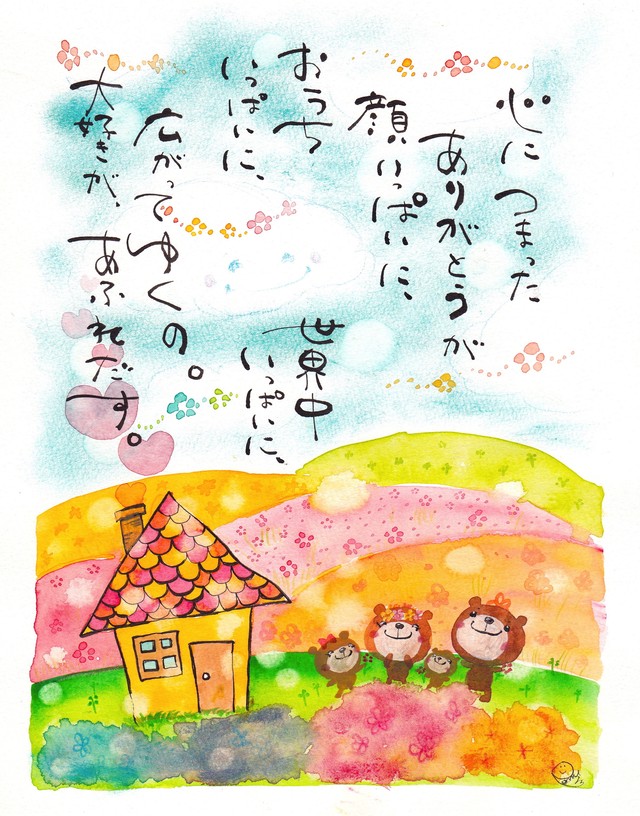 心につまった
ありがとうが
顔いっぱいに、
おうち
いっぱいに、
世界中
いっぱいに、
広がってゆくの。
大好きが、あふれだす。